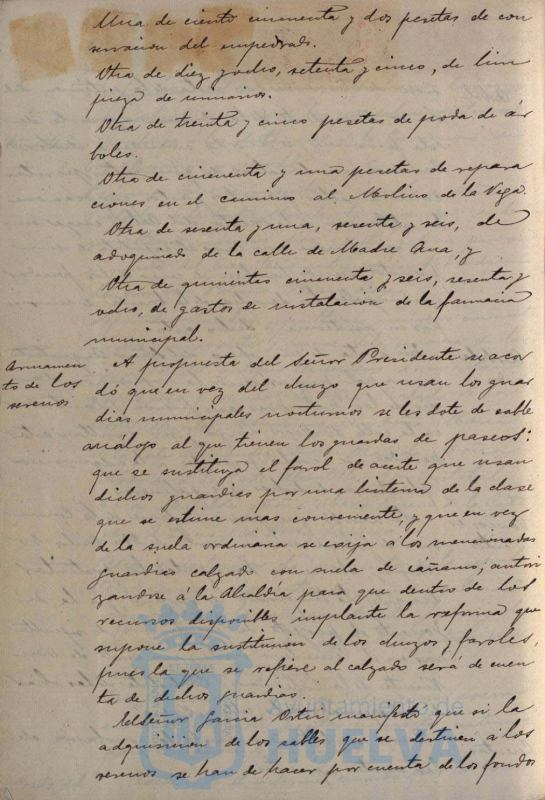 Una de ciento cincuenta y dos pesetas de con
servacion del empedrado.
Otra de diez y ocho, setenta y cinco, de lim
pieza de urinarios.
Otra de treinta y cinco pesetas de poda de ár
boles.
Otra de cincuenta y una pesetas de repara
ciones en el camino al Molino de la Vega.
Otra de sesenta y una, sesenta y seis, de
adoquinado de la calle de Madre Ana, y
Otra de quinientas cincuenta y seis, sesenta y
ocho, de gastos de instalacion de la farmacia
municipal.
Armamen
to de los
serenos
A propuesta del Señor Presidente se acor
dó que en vez del chuzo que usan los guar
dias municipales nocturnos se les dote de sable
análogo al que tienen los guardas de paseos:
que se sustituya el farol de aceite que usan
dichos guardias por una linterna de la clase
que se estime mas conveniente, y que en vez
de la suela ordinaria se exija á los mencionados
guardias calzado con suela de cáñamo; autori
zandose á la Alcaldía para que dentro de los
recursos disponibles implante la reforma que
supone la sustitucion de los chuzos y faroles,
pues la que se refiere al calzado será de cuen
ta de dichos guardias.
El Señor Garcia Ortiz manifestó que si la
adquisicion de los sables que se destinen á los
serenos se han de hacer por cuenta de los fondos
Ayuntamiento de
HUELVA